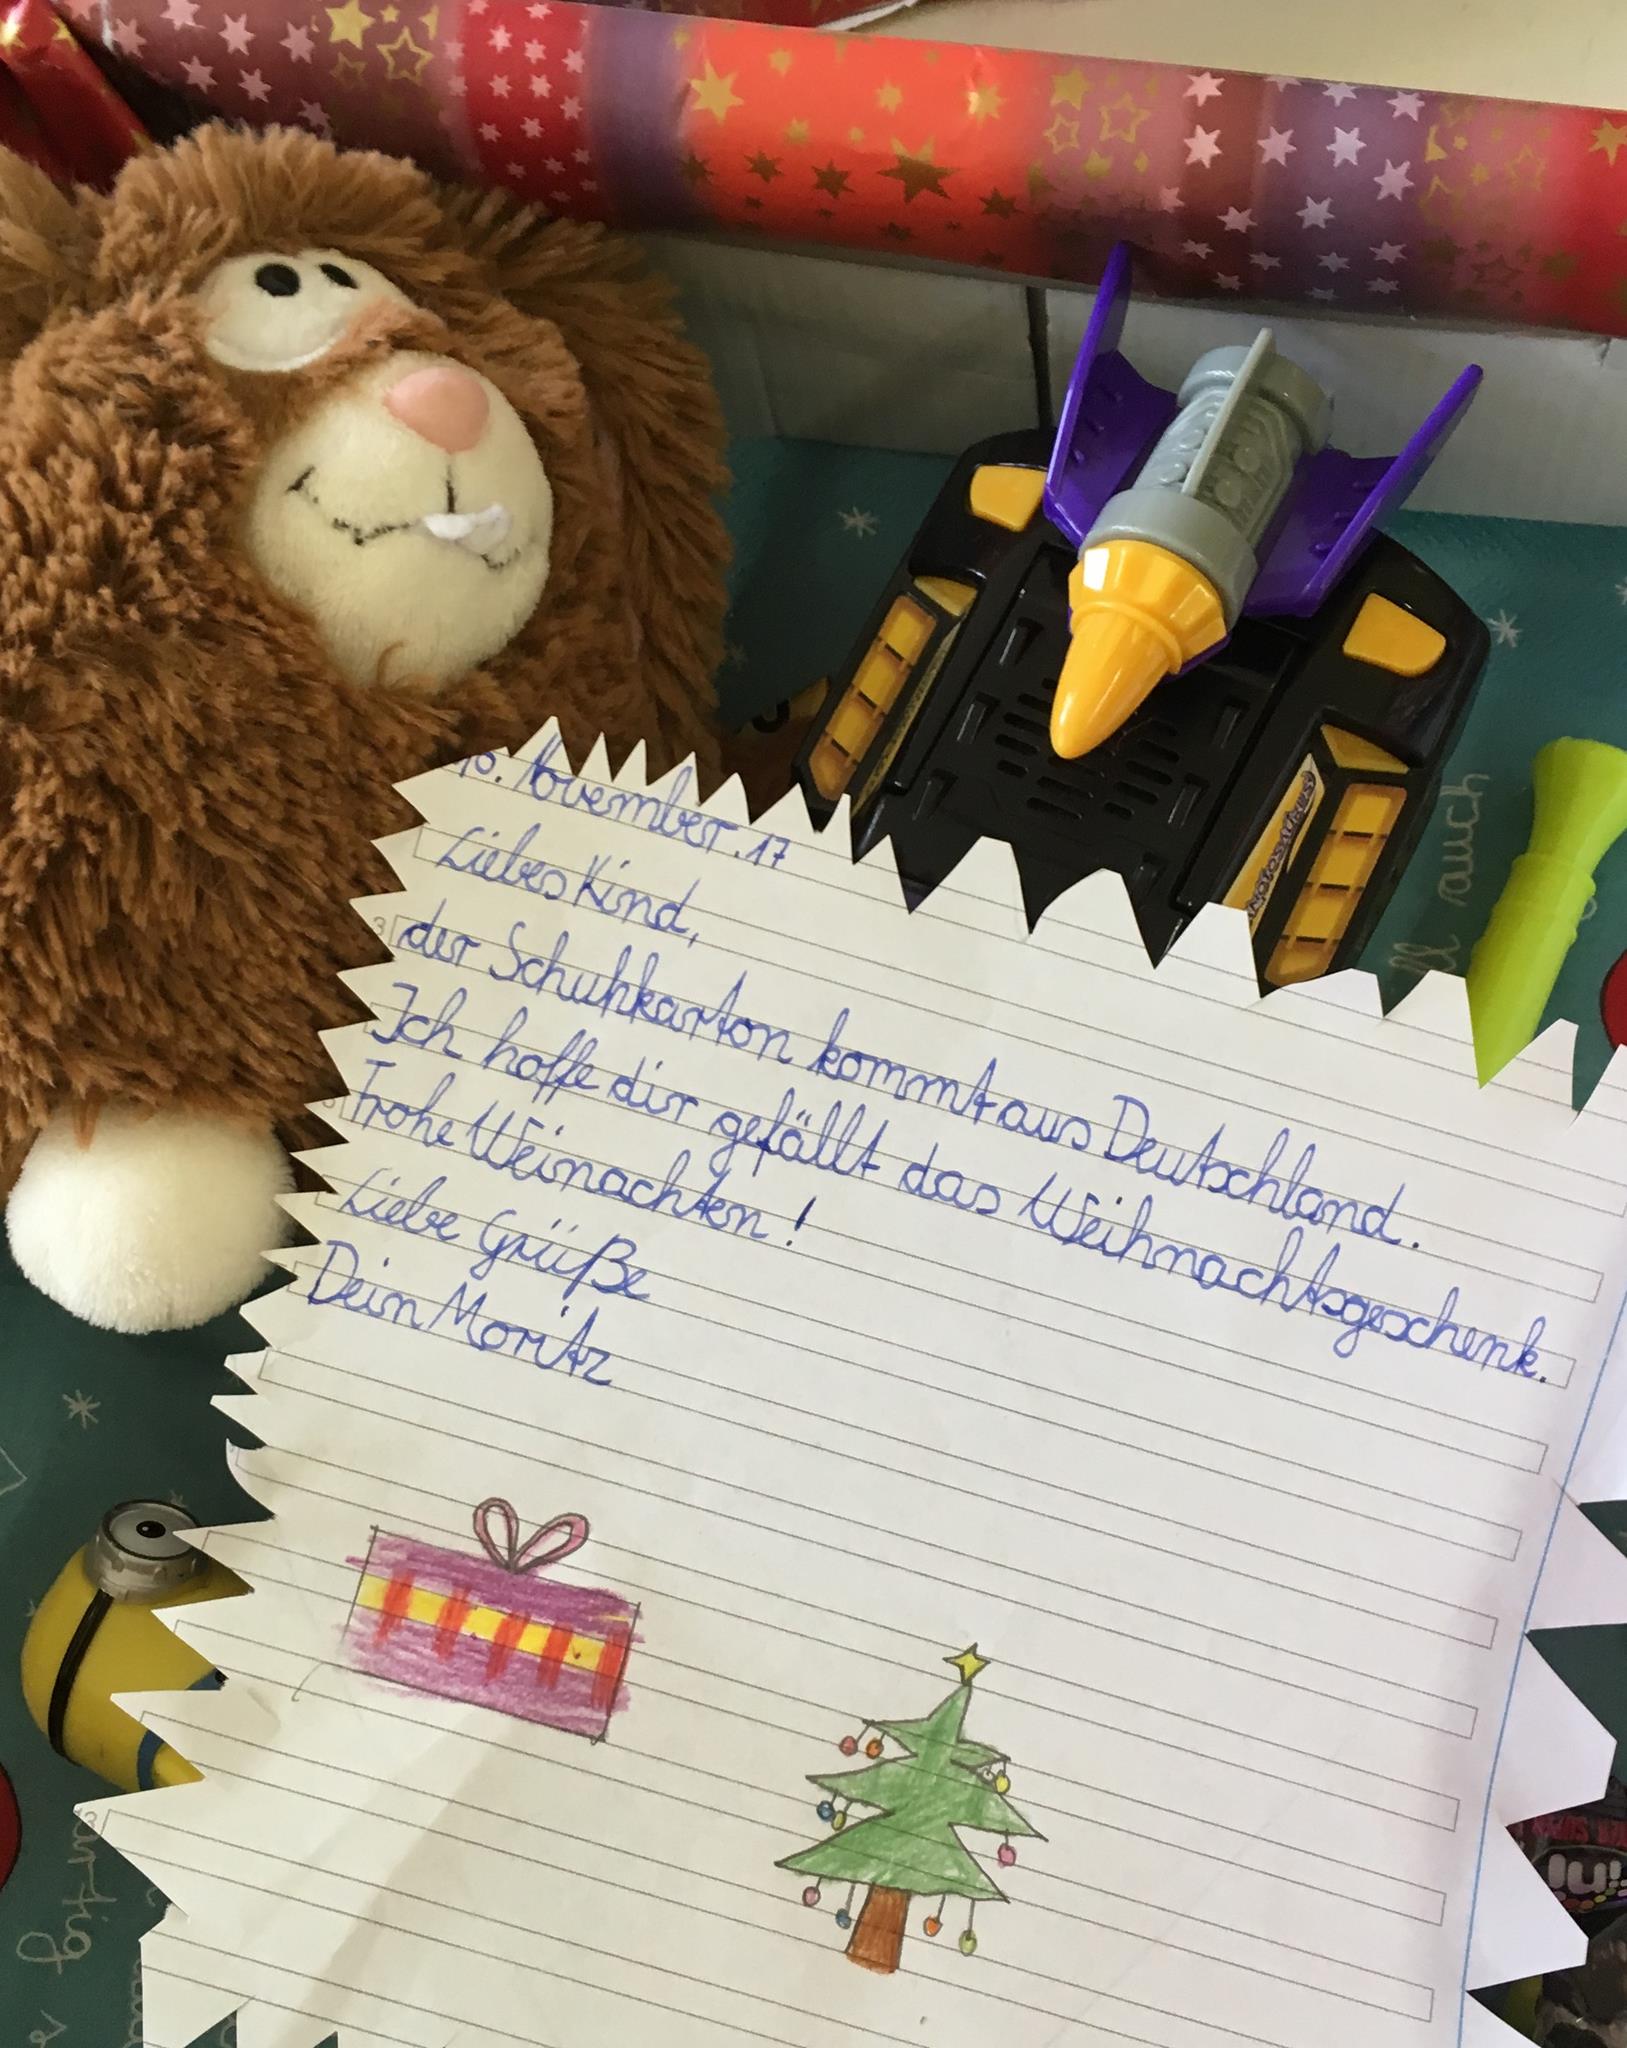 November.17
Liebes Kind,
der Schuhkarton kommt aus Deutschland.
Ich hoffe dir gefällt das Weihnachtsgeschenk.
Frohe Weinachten!
Liebe Grüße
Dein Moritz
auch